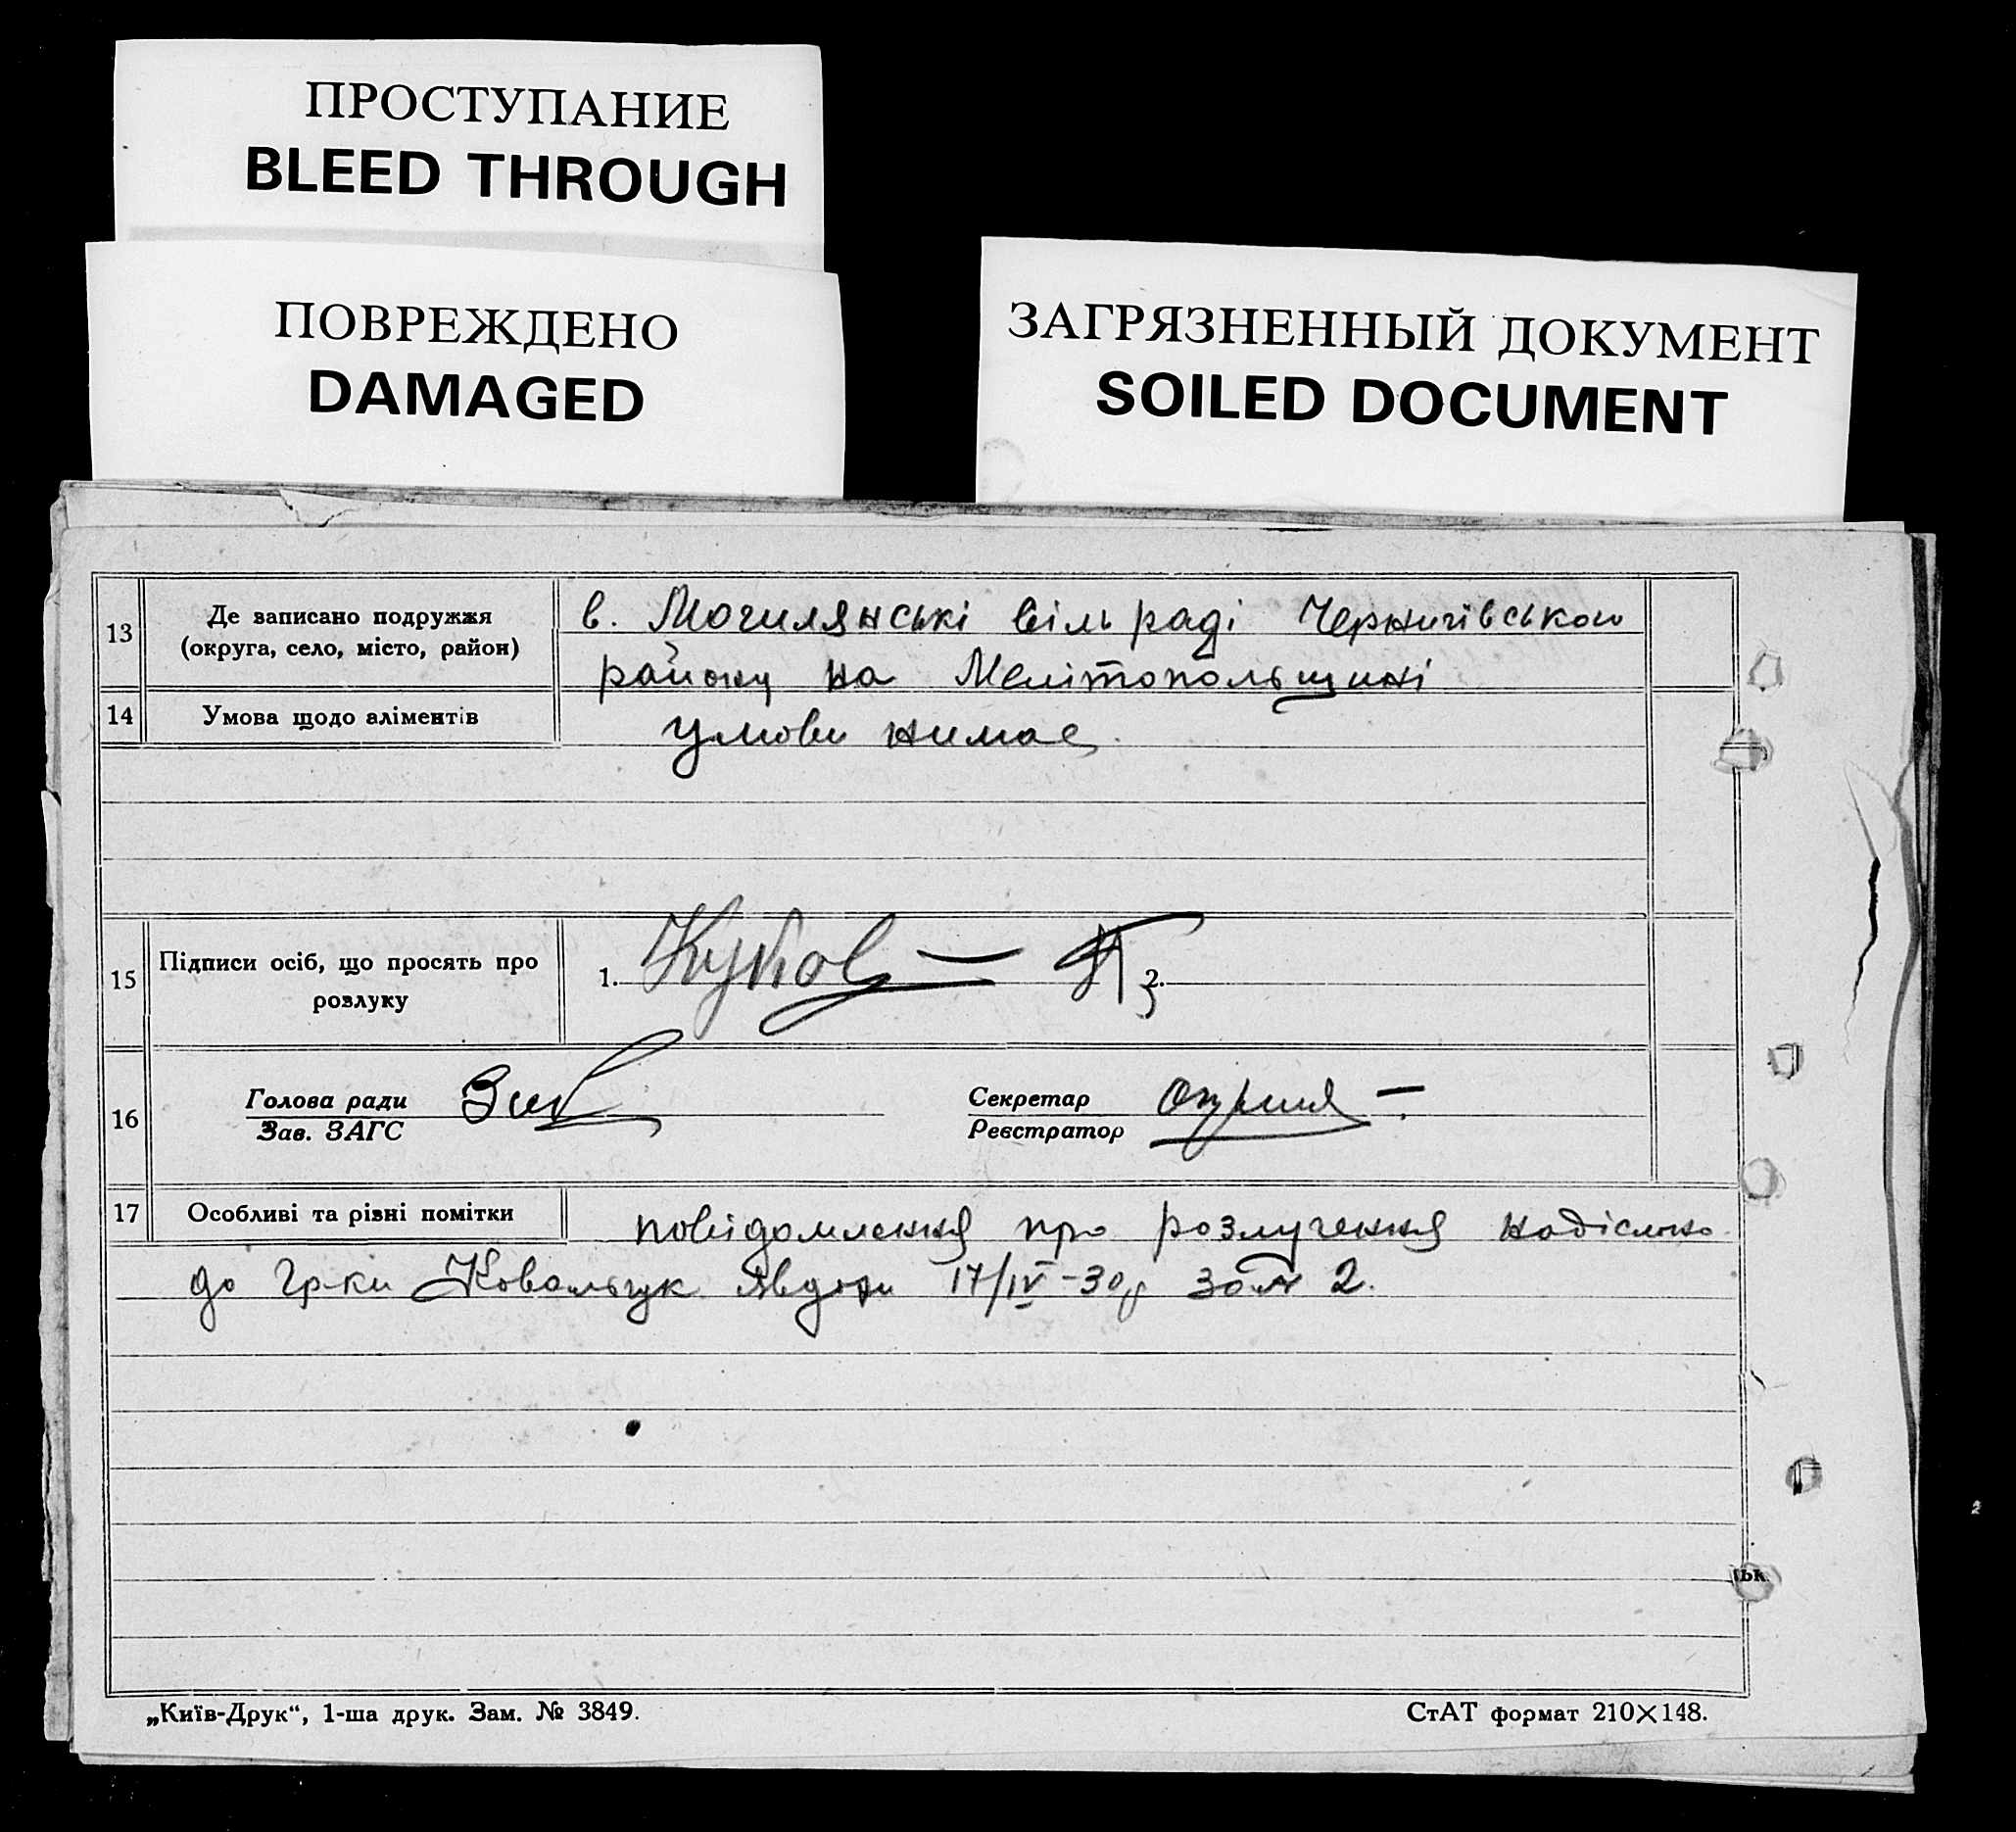 ПРОСТУПАНИЕ
BLEED THROUGH
ПОВРЕЖДЕНО
DAMAGED
ЗАГРЯЗНЕННЫЙ ДОКУМЕНТ
SOILED DOCUMENT
13
Де записано подружжя
(округа, село, місто, район)
в. Могилянські сільраді Чернигівського
району на Мелітопольщині
14
Умова щодо аліментів
умови нимає.
15
Підписи осіб, що просять про
розлуку
1.
2.
16
Голова ради
Зав. ЗАГС
Секретар
Реєстратор
17
Особливі та різні помітки
повідомлення про розлучення надіслано
до гр-ки Ковальчук Явдохи 17/IV-30р за № 2.
ськ.
„Київ-Друк“, 1-ша друк. Зам. № 3849.
СтАТ формат 210×148.